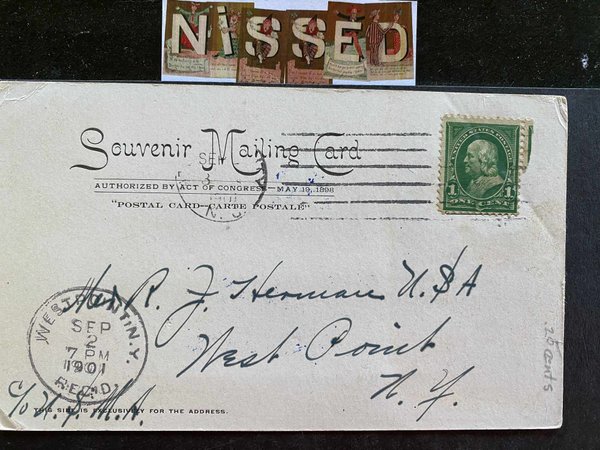 NiSSED
Souvenir Mailing Card
AUTHORIZED BY ACT OF CONGRESS—MAY 19, 1898
"POSTAL CARD—CARTE POSTALE"
SEP
1
1
ONE CENT
R. J. Herman U.S A
West Point
N. Y.
WEST POINT N.Y.
SEP
2
7 PM
1901
REC'D.
c/o U.S.M.A.
THIS SIDE IS EXCLUSIVELY FOR THE ADDRESS.
20 cents